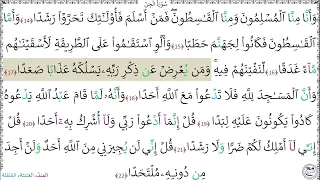 سُورَةُ الجِنِّ
وَأَنَّا مِنَّا ٱلْمُسْلِمُونَ وَمِنَّا ٱلْقَٰسِطُونَ ۖ فَمَنْ أَسْلَمَ فَأُو۟لَٰٓئِكَ تَحَرَّوْا۟ رَشَدًا (14) وَأَمَّا
ٱلْقَٰسِطُونَ فَكَانُوا۟ لِجَهَنَّمَ حَطَبًا (15) وَأَلَّوِ ٱسْتَقَٰمُوا۟ عَلَى ٱلطَّرِيقَةِ لَأَسْقَيْنَٰهُم
مَّآءً غَدَقًا (16) لِّنَفْتِنَهُمْ فِيهِ ۚ وَمَن يُعْرِضْ عَن ذِكْرِ رَبِّهِۦ يَسْلُكْهُ عَذَابًا صَعَدًا (17)
وَأَنَّ ٱلْمَسَٰجِدَ لِلَّهِ فَلَا تَدْعُوا۟ مَعَ ٱللَّهِ أَحَدًا (18) وَأَنَّهُۥ لَمَّا قَامَ عَبْدُ ٱللَّهِ يَدْعُوهُ
كَادُوا۟ يَكُونُونَ عَلَيْهِ لِبَدًا (19) قُلْ إِنَّمَآ أَدْعُوا۟ رَبِّى وَلَآ أُشْرِكُ بِهِۦٓ أَحَدًا (20) قُلْ
إِنِّى لَآ أَمْلِكُ لَكُمْ ضَرًّا وَلَا رَشَدًا (21) قُلْ إِنِّى لَن يُجِيرَنِى مِنَ ٱللَّهِ أَحَدٌ وَلَنْ أَجِدَ
مِن دُونِهِۦ مُلْتَحَدًا (22)